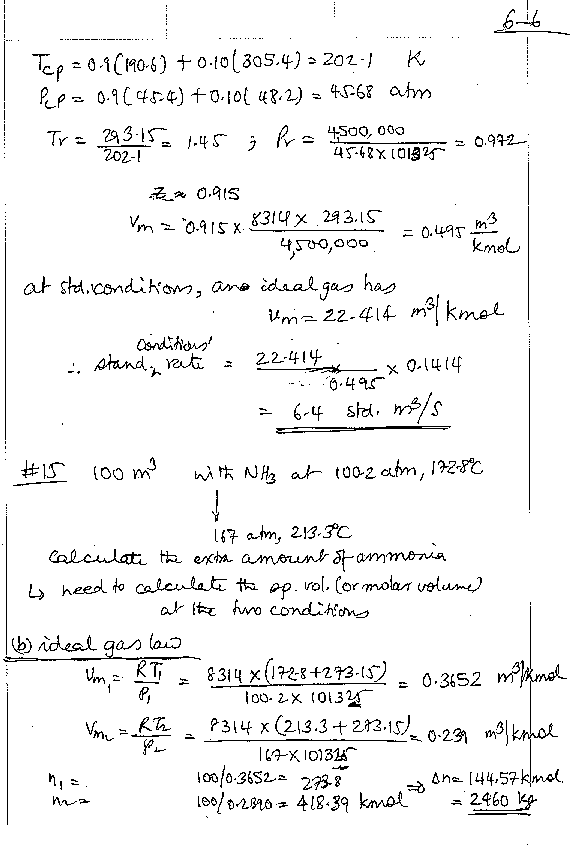 6-6
Tcp = 0.9(190.6) + 0.10(305.4) = 202.1 K
Pcp = 0.9(45.4) + 0.10(48.2) = 45.68 atm
Tr = 293.15/202.1 = 1.45 ; Pr = 4,500,000/45.68×101325 = 0.972
Z ≈ 0.915
Vm = 0.915 × 8314 × 293.15/4,500,000 = 0.495 m³/kmol
at std. conditions, an ideal gas has
Vm = 22.414 m³/kmol
conditions'
∴ stand, rate = 22.414/0.495 × 0.1414
= 6.4 std. m³/s
#15 100 m³ with NH3 at 100.2 atm, 172.8°C
↓
167 atm, 213.3°C
Calculate the extra amount of ammonia
↳ need to calculate the sp. vol. (or molar volume)
at the two conditions
(b) ideal gas law
Vm1 = RT1/P1 = 8314 × (172.8+273.15)/100.2 × 101325 = 0.3652 m³/kmol
Vm2 = RT2/P2 = 8314 × (213.3 + 273.15)/167 × 101325 = 0.239 m³/kmol
n1 = 100/0.3652 = 273.8 ⇒ Δn = 144.57 kmol
100/0.2390 = 418.39 kmol = 2460 kg